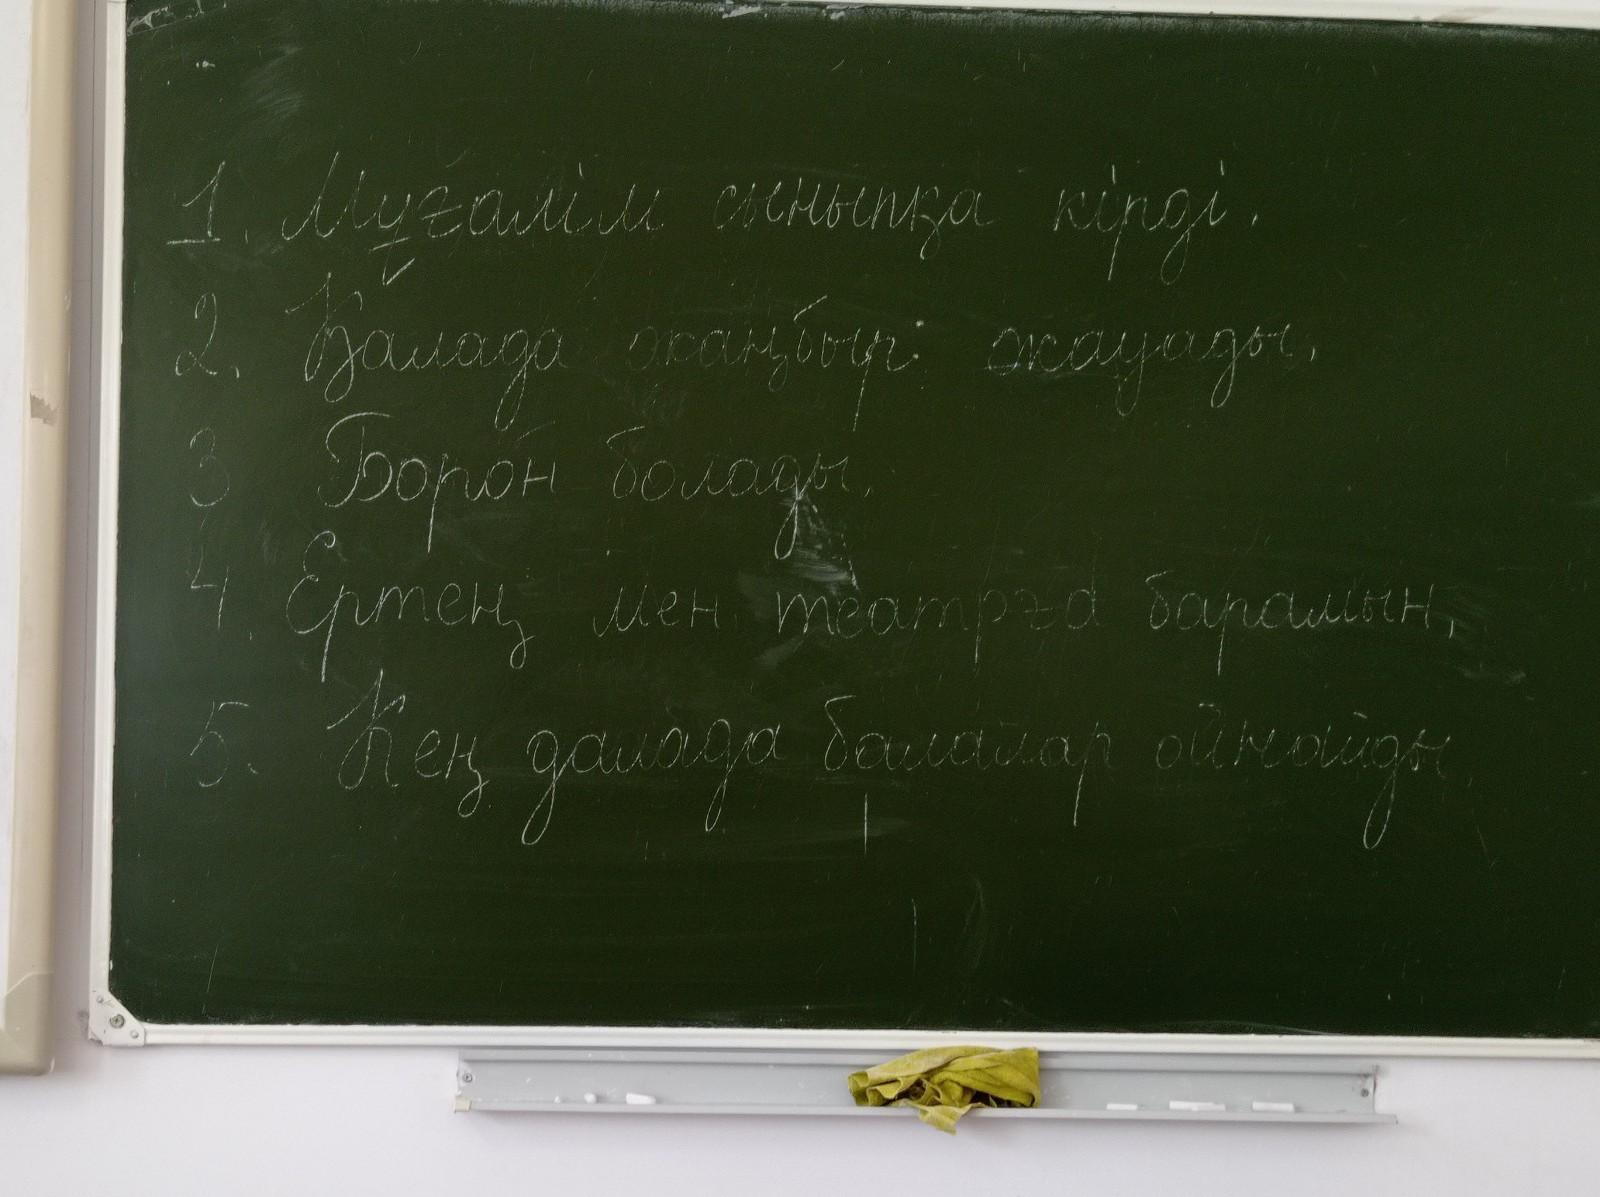 1. Мұғалім сыныпқа кірді.
2. Қалада жаңбыр жауады.
3 Боран болады.
4. Ертең мен театрға барамын.
5. Кең далада балалар ойнайды